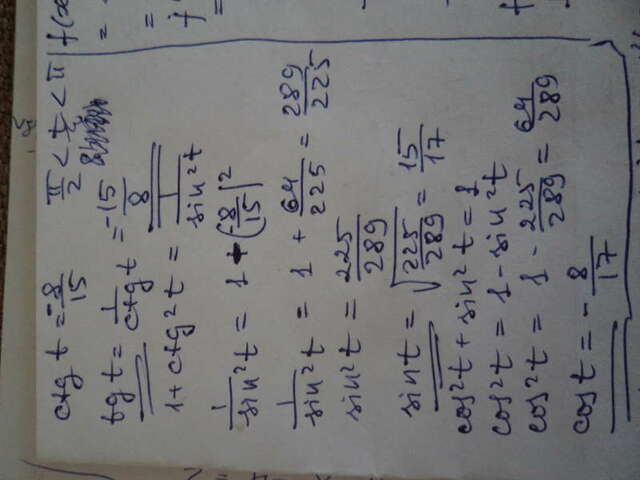 ctg t = -8/15   π/2 < t < π
tg t = 1/ctg t = -15/8
1 + ctg²t = 1/sin²t
1/sin²t = 1 + (-8/15)²
1/sin²t = 1 + 64/225 = 289/225
sin²t = 225/289
sin t = √(225/289) = 15/17
cos²t + sin²t = 1
cos²t = 1 - sin²t
cos²t = 1 - 225/289 = 64/289
cos t = -8/17